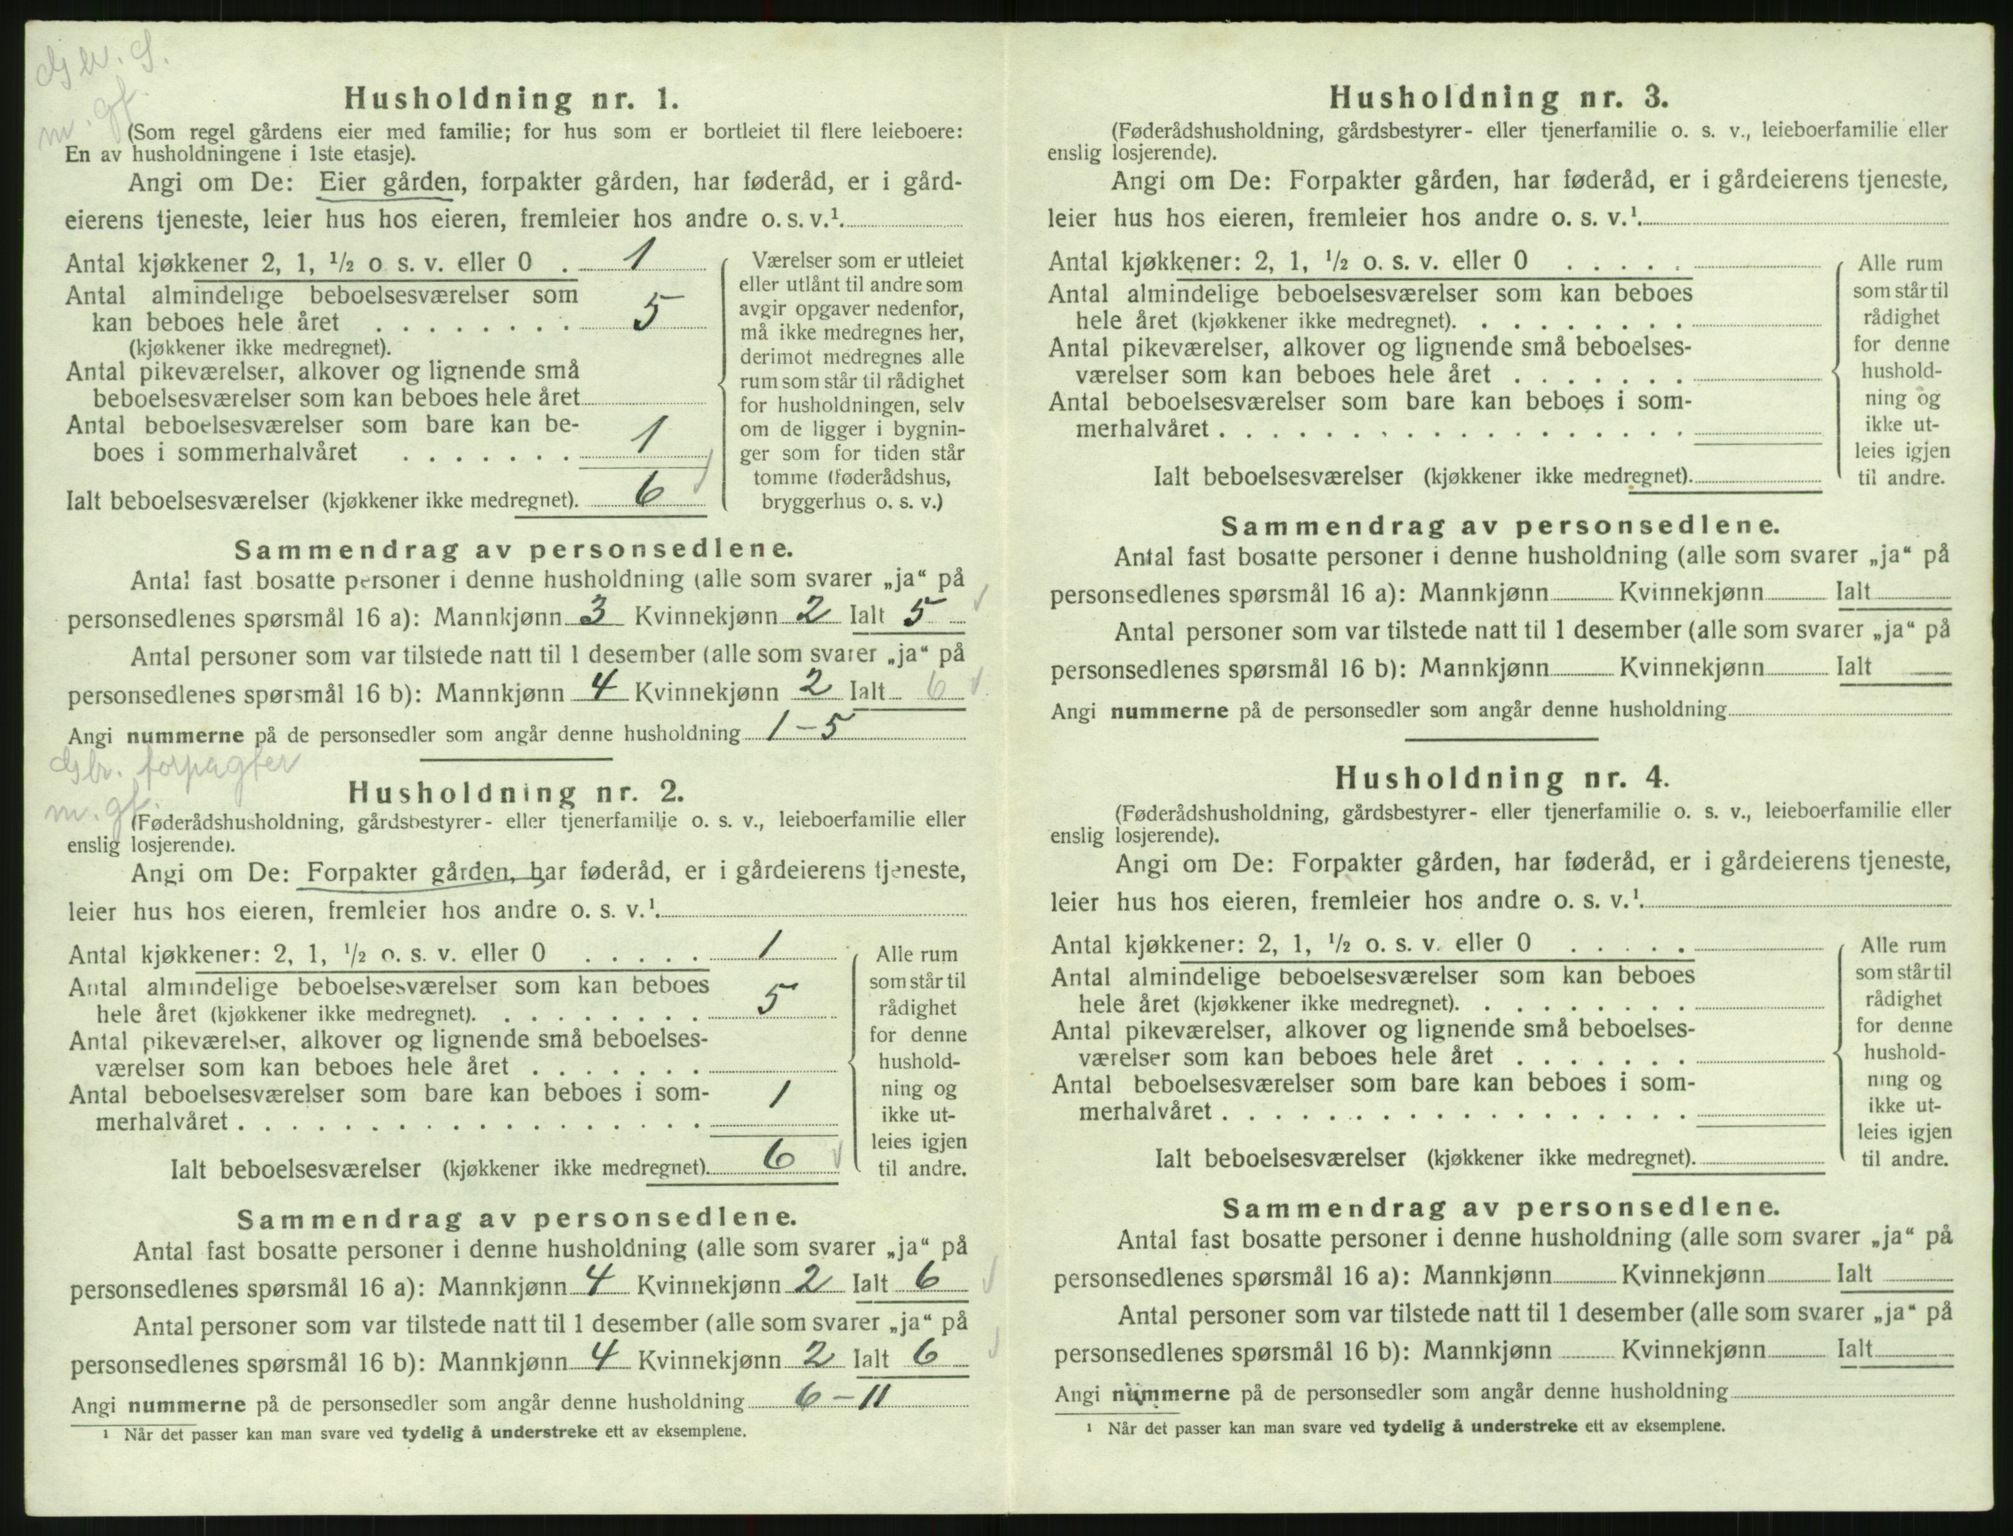 Husholdning nr. 1.
m. gf.
(Som regel gårdens eier med familie; for hus som er bortleiet til flere leieboere:
En av husholdningene i 1ste etasje).
Angi om De: Eier gården, forpakter gården, har føderåd, er i gård-
eierens tjeneste, leier hus hos eieren, fremleier hos andre o. s. v.¹.
Antal kjøkkener 2, 1, ½ o s. v. eller 0 . 1
Antal almindelige beboelsesværelser som
kan beboes hele året . . . . . . . . 5
(kjøkkener ikke medregnet).
Antal pikeværelser, alkover og lignende små
beboelsesværelser som kan beboes hele året
Antal beboelsesværelser som bare kan be-
boes i sommerhalvåret . . . . . . . 1
Ialt beboelsesværelser (kjøkkener ikke medregnet). 6
Værelser som er utleiet
eller utlånt til andre som
avgir opgaver nedenfor,
må ikke medregnes her,
derimot medregnes alle
rum som står til rådighet
for husholdningen, selv
om de ligger i bygnin-
ger som for tiden står
tomme (føderådshus,
bryggerhus o. s. v.)
Sammendrag av personsedlene.
Antal fast bosatte personer i denne husholdning (alle som svarer „ja“ på
personsedlenes spørsmål 16 a): Mannkjønn 3 Kvinnekjønn 2 Ialt 5
Antal personer som var tilstede natt til 1 desember (alle som svarer „ja“ på
personsedlenes spørsmål 16 b): Mannkjønn 4 Kvinnekjønn 2 Ialt 6
Angi nummerne på de personsedler som angår denne husholdning 1-5
Gbr. forpagter
m. gf.
Husholdning nr. 2.
(Føderådshusholdning, gårdsbestyrer- eller tjenerfamilie o. s. v., leieboerfamilie eller
enslig losjerende).
Angi om De: Forpakter gården, har føderåd, er i gårdeierens tjeneste,
leier hus hos eieren, fremleier hos andre o. s. v.¹.
Antal kjøkkener: 2, 1, ½ o. s. v. eller 0 . . . . . 1
Antal almindelige beboelsesværelser som kan beboes
hele året (kjøkkener ikke medregnet). . . . . . . . . 5
Antal pikeværelser, alkover og lignende små beboelses-
værelser som kan beboes hele året . . . . . . .
Antal beboelsesværelser som bare kan beboes i som-
merhalvåret . . . . . . . . . . . . . . . . . 1
Ialt beboelsesværelser (kjøkkener ikke medregnet). 6
Alle rum
som står til
rådighet
for denne
hushold-
ning og
ikke ut-
leies igjen
til andre.
Sammendrag av personsedlene.
Antal fast bosatte personer i denne husholdning (alle som svarer „ja“ på
personsedlenes spørsmål 16 a): Mannkjønn 4 Kvinnekjønn 2 Ialt 6
Antal personer som var tilstede natt til 1 desember (alle som svarer „ja“ på
personsedlenes spørsmål 16 b): Mannkjønn 4 Kvinnekjønn 2 Ialt 6
Angi nummerne på de personsedler som angår denne husholdning 6-11
¹ Når det passer kan man svare ved tydelig å understreke ett av eksemplene.
Husholdning nr. 3.
(Føderådshusholdning, gårdsbestyrer- eller tjenerfamilie o. s. v., leieboerfamilie eller
enslig losjerende).
Angi om De: Forpakter gården, har føderåd, er i gårdeierens tjeneste,
leier hus hos eieren, fremleier hos andre o. s. v.¹.
Antal kjøkkener: 2, 1, ½ o. s. v. eller 0 . . . . .
Antal almindelige beboelsesværelser som kan beboes
hele året (kjøkkener ikke medregnet). . . . . . . . .
Antal pikeværelser, alkover og lignende små beboelses-
værelser som kan beboes hele året . . . . . . .
Antal beboelsesværelser som bare kan beboes i som-
merhalvåret . . . . . . . . . . . . . . . . .
Ialt beboelsesværelser (kjøkkener ikke medregnet).
Alle rum
som står til
rådighet
for denne
hushold-
ning og
ikke ut-
leies igjen
til andre.
Sammendrag av personsedlene.
Antal fast bosatte personer i denne husholdning (alle som svarer „ja“ på
personsedlenes spørsmål 16 a): Mannkjønn Kvinnekjønn Ialt
Antal personer som var tilstede natt til 1 desember (alle som svarer „ja“ på
personsedlenes spørsmål 16 b): Mannkjønn Kvinnekjønn Ialt
Angi nummerne på de personsedler som angår denne husholdning
Husholdning nr. 4.
(Føderådshusholdning, gårdsbestyrer- eller tjenerfamilie o. s. v., leieboerfamilie eller
enslig losjerende).
Angi om De: Forpakter gården, har føderåd, er i gårdeierens tjeneste,
leier hus hos eieren, fremleier hos andre o. s. v.¹.
Antal kjøkkener: 2, 1, ½ o. s. v. eller 0 . . . . .
Antal almindelige beboelsesværelser som kan beboes
hele året (kjøkkener ikke medregnet). . . . . . . . .
Antal pikeværelser, alkover og lignende små beboelses-
værelser som kan beboes hele året . . . . . . .
Antal beboelsesværelser som bare kan beboes i som-
merhalvåret . . . . . . . . . . . . . . . . .
Ialt beboelsesværelser (kjøkkener ikke medregnet).
Alle rum
som står til
rådighet
for denne
hushold-
ning og
ikke ut-
leies igjen
til andre.
Sammendrag av personsedlene.
Antal fast bosatte personer i denne husholdning (alle som svarer „ja“ på
personsedlenes spørsmål 16 a): Mannkjønn Kvinnekjønn Ialt
Antal personer som var tilstede natt til 1 desember (alle som svarer „ja“ på
personsedlenes spørsmål 16 b): Mannkjønn Kvinnekjønn Ialt
Angi nummerne på de personsedler som angår denne husholdning
¹ Når det passer kan man svare ved tydelig å understreke ett av eksemplene.